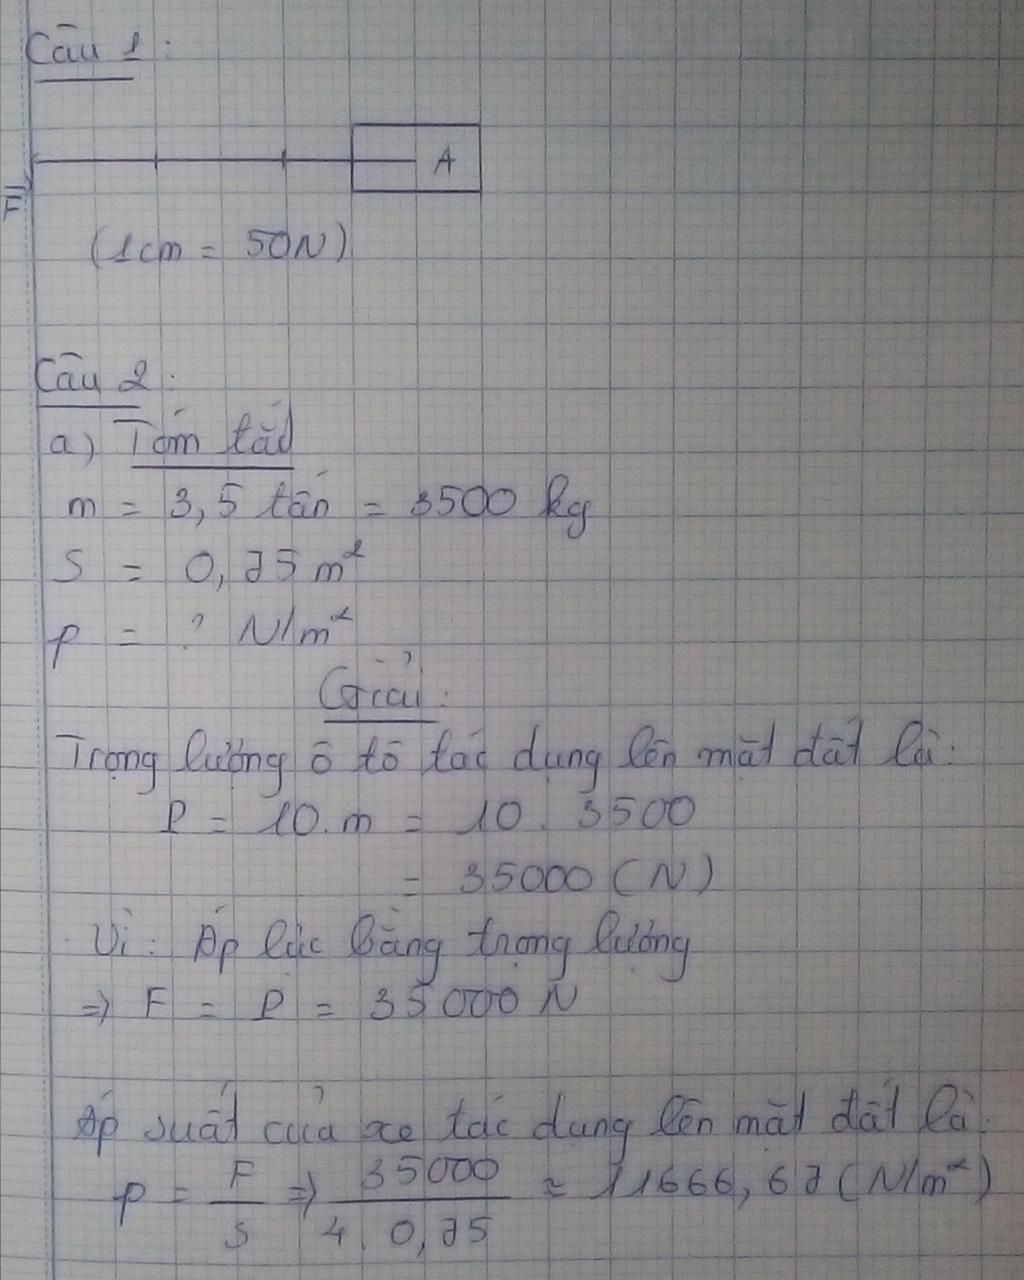 Câu 1:
A
F
(1cm = 50N)
Câu 2:
a) Tóm tắt
m = 3,5 tấn = 3500 kg
S = 0,75 m²
p = ? N/m²
Giải:
Trọng lượng ô tô tác dụng lên mặt đất là:
P = 10.m = 10. 3500
= 35000 (N)
Vì: Áp lực bằng trọng lượng
=> F = P = 35000 N
Áp suất của xe tác dụng lên mặt đất là:
p = F/S => 35000/4. 0,75 ≈ 11666,67 (N/m²)